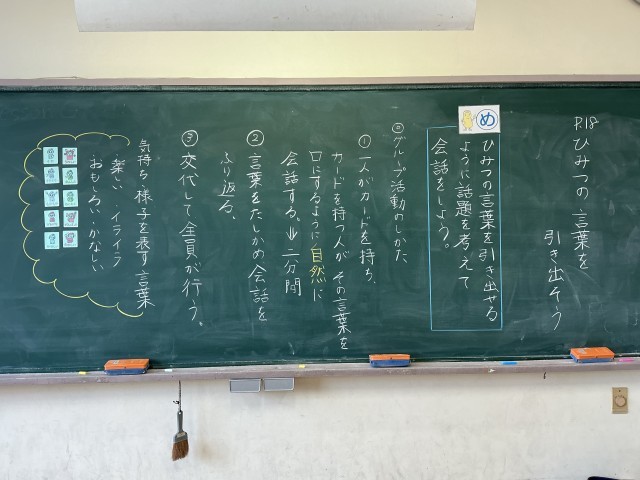 P.18 ひみつの言葉を
引き出そう
め
ひみつの言葉を引き出せる
ように話題を考えて
会話をしよう。
◎グループ活動のしかた
① 一人がカードを持ち、
カードを持つ人が、その言葉を
口にするように自然に
会話する。↓二分間
② 言葉をたしかめ会話を
ふり返る。
③ 交代して全員が行う。
気持ち・様子を表す言葉
楽しい・イライラ
おもしろい・かなしい